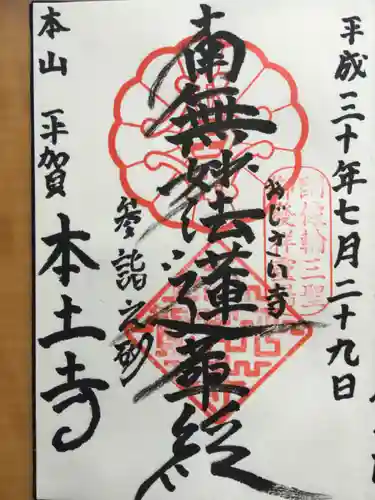 平成三十年七月二十九日
あじさい寺
南無妙法蓮華経
参詣之砌
本山 平賀
本土寺